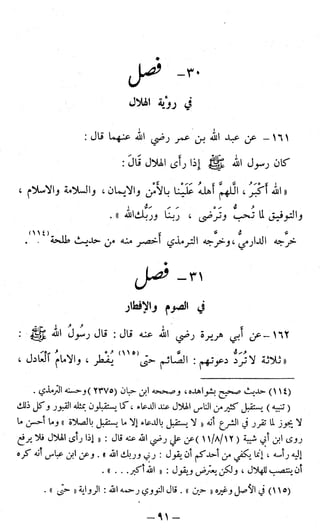 ٣٠- فصل
في رؤية الهلال
١٦١- عن عبد الله بن عمر رضي الله عنهما قال :
كان رسول الله ﷺ إذا رأى الهلال قَالَ :
« الله أَكْبَرُ ، اللَّهم أَهِلَّهُ عَلَيْنا بالأَمْنِ والإيمان ، والسلامة والاسلام ،
والتوفيق لما تُحِبُّ وتَرْضى ، رَبُّنا ورَبُّكَ الله » .
خرَّجه الدارمي ، وخرَّجه الترمذي أخصر منه من حديث طلحة (١١٤) .
٣١- فصل
في الصوم والإفطار
١٦٢- عن أبي هريرة رضي الله عنه قال : قال رسُولُ الله ﷺ :
« ثلاثة لا تُرَدُّ دعوتهم : الصَّائم حتى (١١٥) يُفطر ، والامامُ الْعَادل ،
(١١٤) حديث صحيح بشواهده ، وصححه ابن حبان (٢٣٧٥) وحسنه الترمذي .
( تنبيه ) يستقبل كثير من الناس الهلال عند الدعاء ، كما يستقبلون بمثله القبور وكل ذلك
لا يجوز لما تقرر في الشرع أنه « لا يستقبل بالدعاء إلا ما يستقبل بالصلاة » وما أحسن ما
روى ابن أبي شيبة (١١/٨/١٢) عن علي رضي الله عنه قال : « إذا رأى الهلال فلا يرفع
إليه رأسه ، إنما يكفي من أحدكم أن يقول : ربي وربك الله » . وعن ابن عباس أنه كره
أن ينتصب للهلال ، ولكن يعترض ويقول : « الله أكبر . . . » .
(١١٥) في الأصل وغيره « حين » . قال النووي رحمه الله : الرواية « حتى » .
- ٩١ -